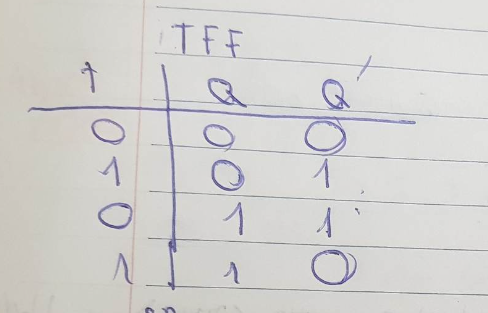 TFF
T Q Q'
0 0 0
1 0 1
0 1 1
1 1 0